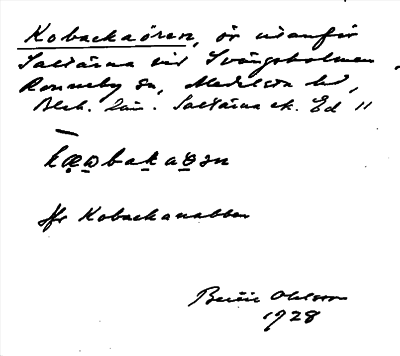 Kobackaören, ör utanför
Saltärna vid Svängsholmen,
Ronneby sn, Medelsta hd,
Blek. län. Saltärna ek. Ed 11
Jfr Kobackanabben
Bertil Ohlsson
1928